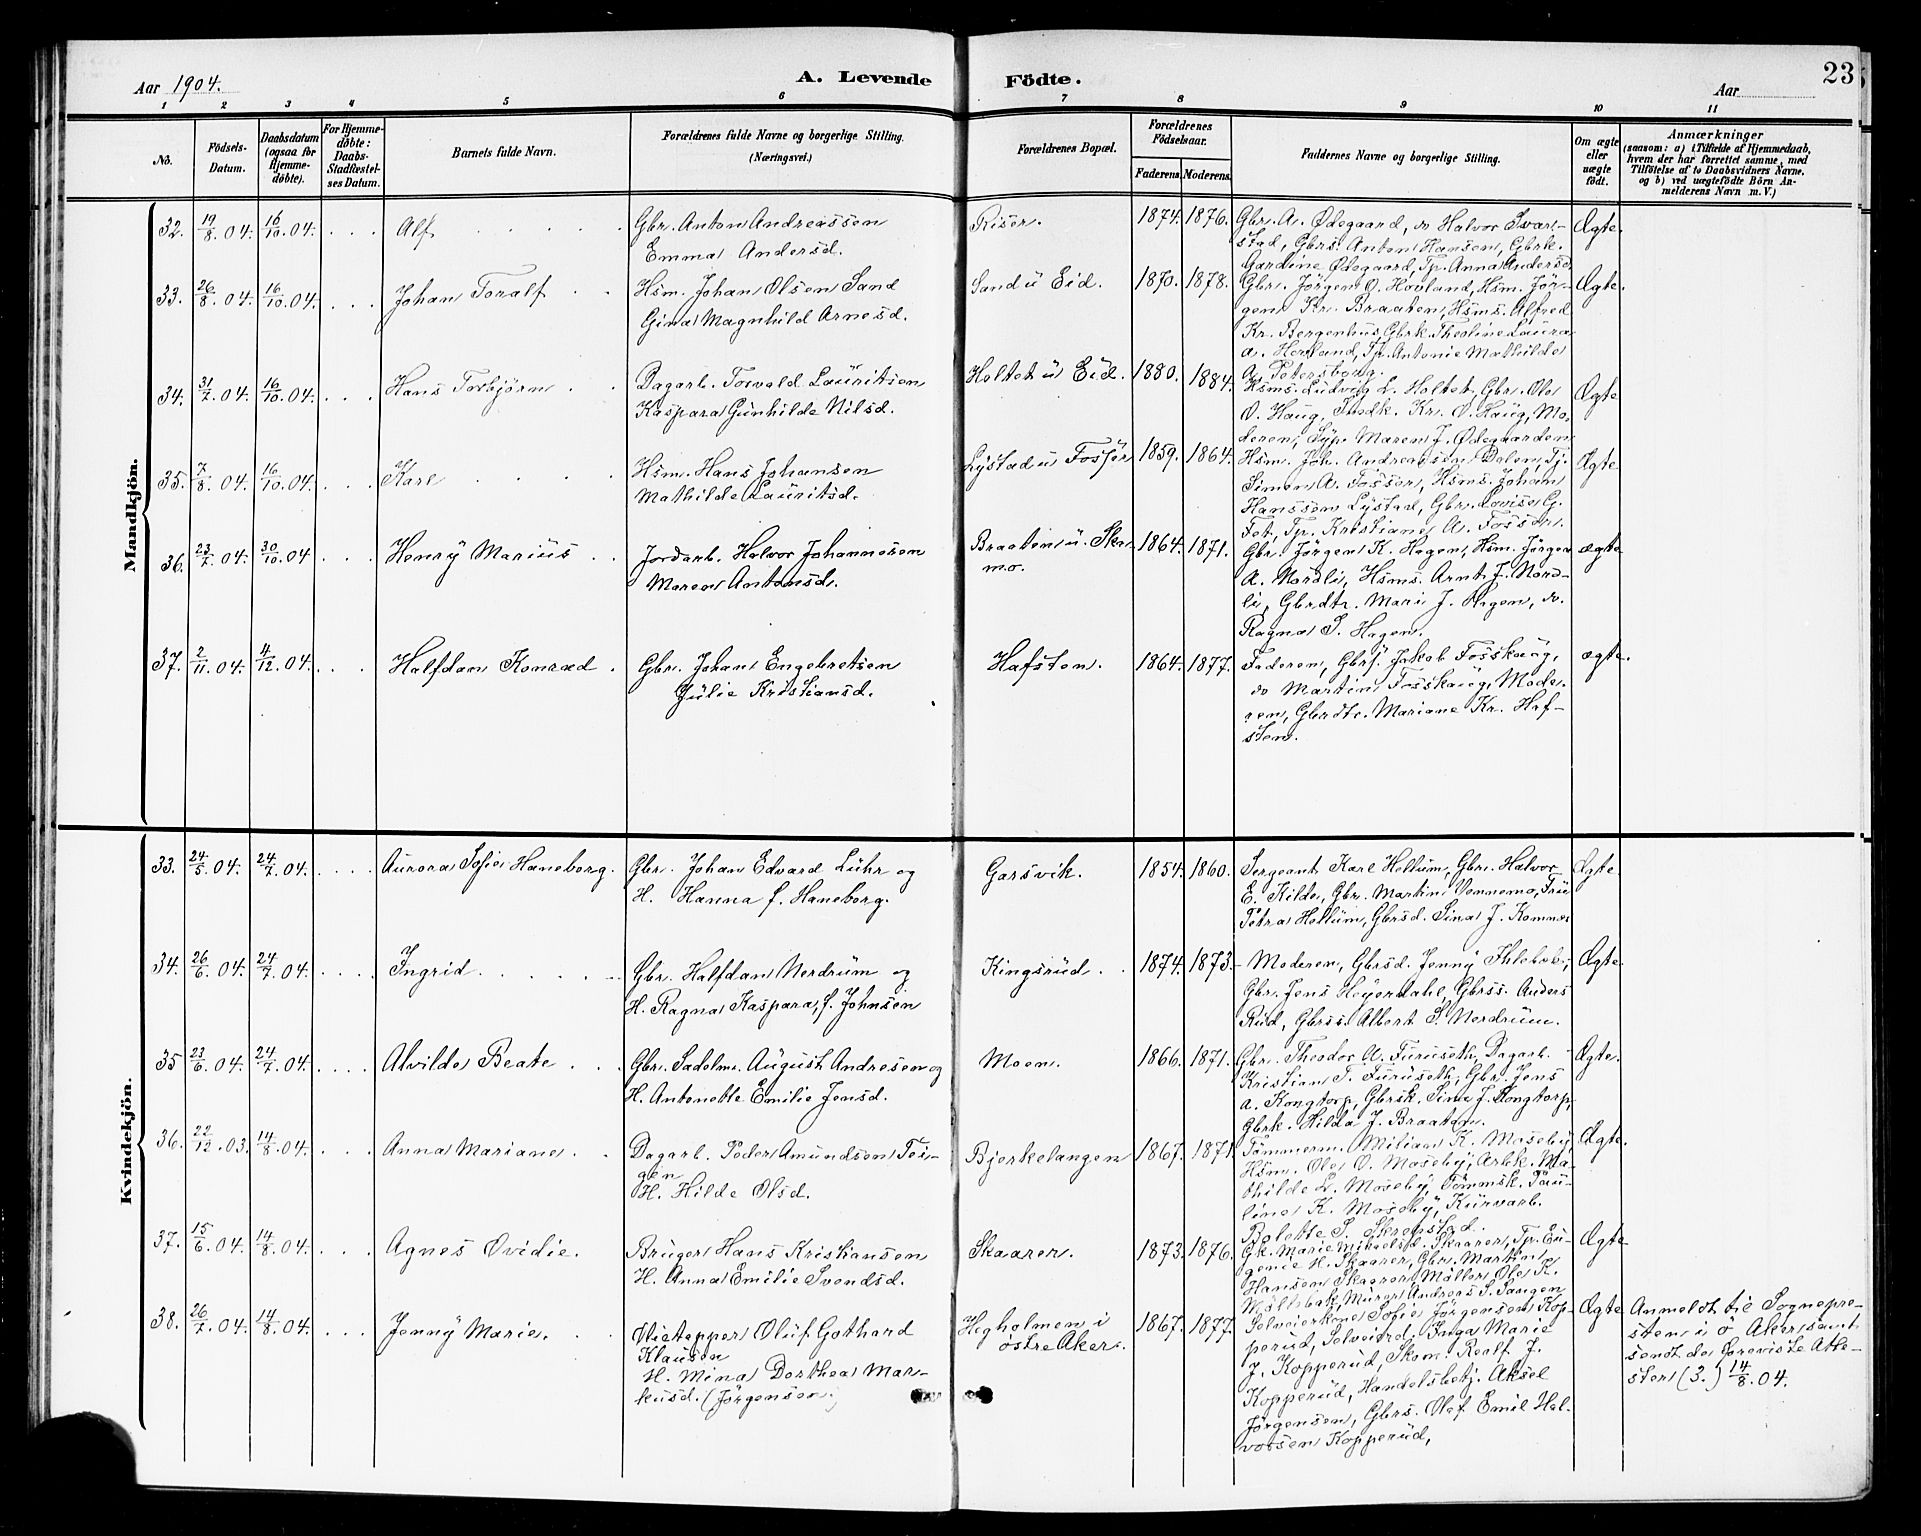 Aar 1904.
A. Levende
Födte.
Aar
23
1 2 3 4 5 6 7 8 9 10 11
No.
Födsels-Datum.
Daabsdatum (ogsaa for Hjemme-döbte).
For Hjemme-döbte: Daabs-Stadfæstel-ses Datum.
Barnets fulde Navn.
Forældrenes fulde Navne og borgerlige Stilling.
(Næringsvei.)
Forældrenes Bopæl.
Forældrenes Födselsaar.
Faderens. Moderens.
Faddernes Navne og borgerlige Stilling.
Om ægte eller uægte födt.
Anmærkninger
(saasom: a) i Tilfælde af Hjemmedaab,
hvem der har forrettet samme, med
Tilföielse af to Daabsvidners Navne,
og b) ved uægtefödte Börn An-
melderens Navn m. V.)
Mandkjön.
32. 19/8 04. 16/10 04. . . . Alf
Gbr. Anton Andreassen
Emma Andersd.
Riser. 1874. 1876.
Gbr. A. Ødegaard, do Halvor Svar-
stad, Gbrs. Anton Hansen, Gbrk.
Gardine Ødegaard, Tp. Anna Andersd.
Ægte.
33. 26/8 04. 16/10 04. . . . Johan Toralf
Hsm. Johan Olsen Sand
Gina Magnhild Arnesd.
Sand u Eid. 1870. 1878.
Gbr. Jörgen O. Hovland, Hsm. Jör-
gen Kr. Braaten, Hsms. Alfred
Kr. Bergenhus, Gbrk. Theoline Laura
A. Hovland, Tp. Antonie Mathilde
A. Petersborg.
Ægte.
34. 31/7 04. 16/10 04. . . . Hans Torbjörn
Dagarb. Torvald Lauritsen
Kaspara Gunhilde Nilsd.
Holtet u Eid. 1880. 1884.
Hsms. Ludvig L. Holtet, Gbr. Ole
O. Haug, Indk. Kr. O. Haug, Mo-
deren, Syp. Maren J. Ødegaarden
Ægte
35. 7/8 04. 16/10 04. . . . Karl
Hsm. Hans Johansen
Mathilde Lauritsd.
Lystad u Fosser 1859. 1864.
Hsm. Joh. Andreassen Dalen, Tj.
Simon A. Fosser, Hsms. Johan
Hanssen Lystad, Gbr. Lovise G.
Fet, Tp. Kristiane A. Fosser.
Ægte
36. 23/7 04. 30/10 04 . . . Henry Marius
Jordarb. Halvor Johannesen
Maren Antonsd.
Braaten u. Skr-
mo. 1864. 1871.
Gbr. Jörgen K. Hagen, Hsm. Jörgen
A. Nordli, Hsms. Arnt J. Nord-
li, Gbrdtr. Mari J. Hagen, do.
Ragna S. Hagen.
ægte
37. 2/11 04. 4/12 04. . . . Halfdan Konrad
Gbr. Johan Engebretsen
Julie Kristiansd.
Hafsten. 1864. 1877.
Faderen, Gbrf. Jakob Fosskaug,
do Martin Fosskaug, Mode-
ren, Gbrdtr. Mariane Kr. Haf-
sten.
ægte.
Kvindekjön.
33. 24/5 04. 24/7 04. . . . Aurora Sofie Haneborg.
Gbr. Johan Edvard Lühr og
H. Hanna f. Haneborg.
Garsvik. 1854. 1860.
Sergeant Karl Hellum, Gbr. Halvor
E. Kilde, Gbr. Martin Vennemo, Fru
Petra Hellum, Gbrsd. Sina J. Komnæs
Ægte
34. 26/6 04. 24/7 04. . . . Ingrid
Gbr. Halfdan Nerdrum og
H. Ragna Kaspara, f. Johnsen
Kingsrud. 1874. 1873.
Moderen, Gbrsd. Jenny Ihlebek,
Gbr. Jens Heyerdahl, Gbrss. Anders
Rud, Gbrss. Albert S. Nerdrum.
Ægte
35 23/6 04. 24/7 04. . . . Alvilde Beate
Gbr. Sadelm. August Andresen og
H. Antonette Emilie Jensd.
Moen. 1866. 1871.
Gbr. Theodor A. Furuseth, Dagarb.
Kristian T. Furuseth, Gbr. Jens
A. Kongtorp, Gbrsk. Sina J. Kongtorp,
Gbrk. Hilda J. Braaten.
Ægte.
36. 22/12 03. 14/8 04. . . . Anna Mariane
Dagarb. Peder Amundsen Tei-
gen
H. Hilde Olsd.
Bjerkelangen 1867. 1871.
Tömmerm. Milian K. Moseby,
Hsm. Ole O. Moseby, Arbk. Ma-
thilde L. Moseby, Tömmsk. Pau-
line K. Moseby, Kurvarb.
Bolette S. Skrenstad.
Ægte.
37. 15/6 04. 14/8 04. . . . Agnes Ovidie.
Bruger Hans Kristiansen
H. Anna Emilie Svendsd.
Skaarer. 1873. 1876.
Gk. Marie Mikaelsd. Skaarer, Tp. Eu-
genie H. Skaarer, Gbr. Martin
Hansen Skaarer, Möller Ole K.
Möllebak, Murer Andreas S. Tangen
Ægte
38. 26/7 04. 14/8 04. . . . Jenny Marie.
Olietapper Oluf Gothard
Klausen
H. Mina Dorthea Mar-
kusd. (Jörgensen.)
Hegholmen i
östre Aker. 1867. 1877.
Selveierkone Sofie Jörgensen Kop-
perud, Selveird. Inga Marie
J. Kopperud, Skom. Rolf J.
Kopperud, Handelsbetj. Aksel
Jörgensen, Gbrs. Olaf Emil Hal-
vorsen Kopperud,
Ægte
Anmeldt til Sognepre-
sten i ö Aker samt
sendt de foreviste Atte-
ster (3.) 14/8 04.